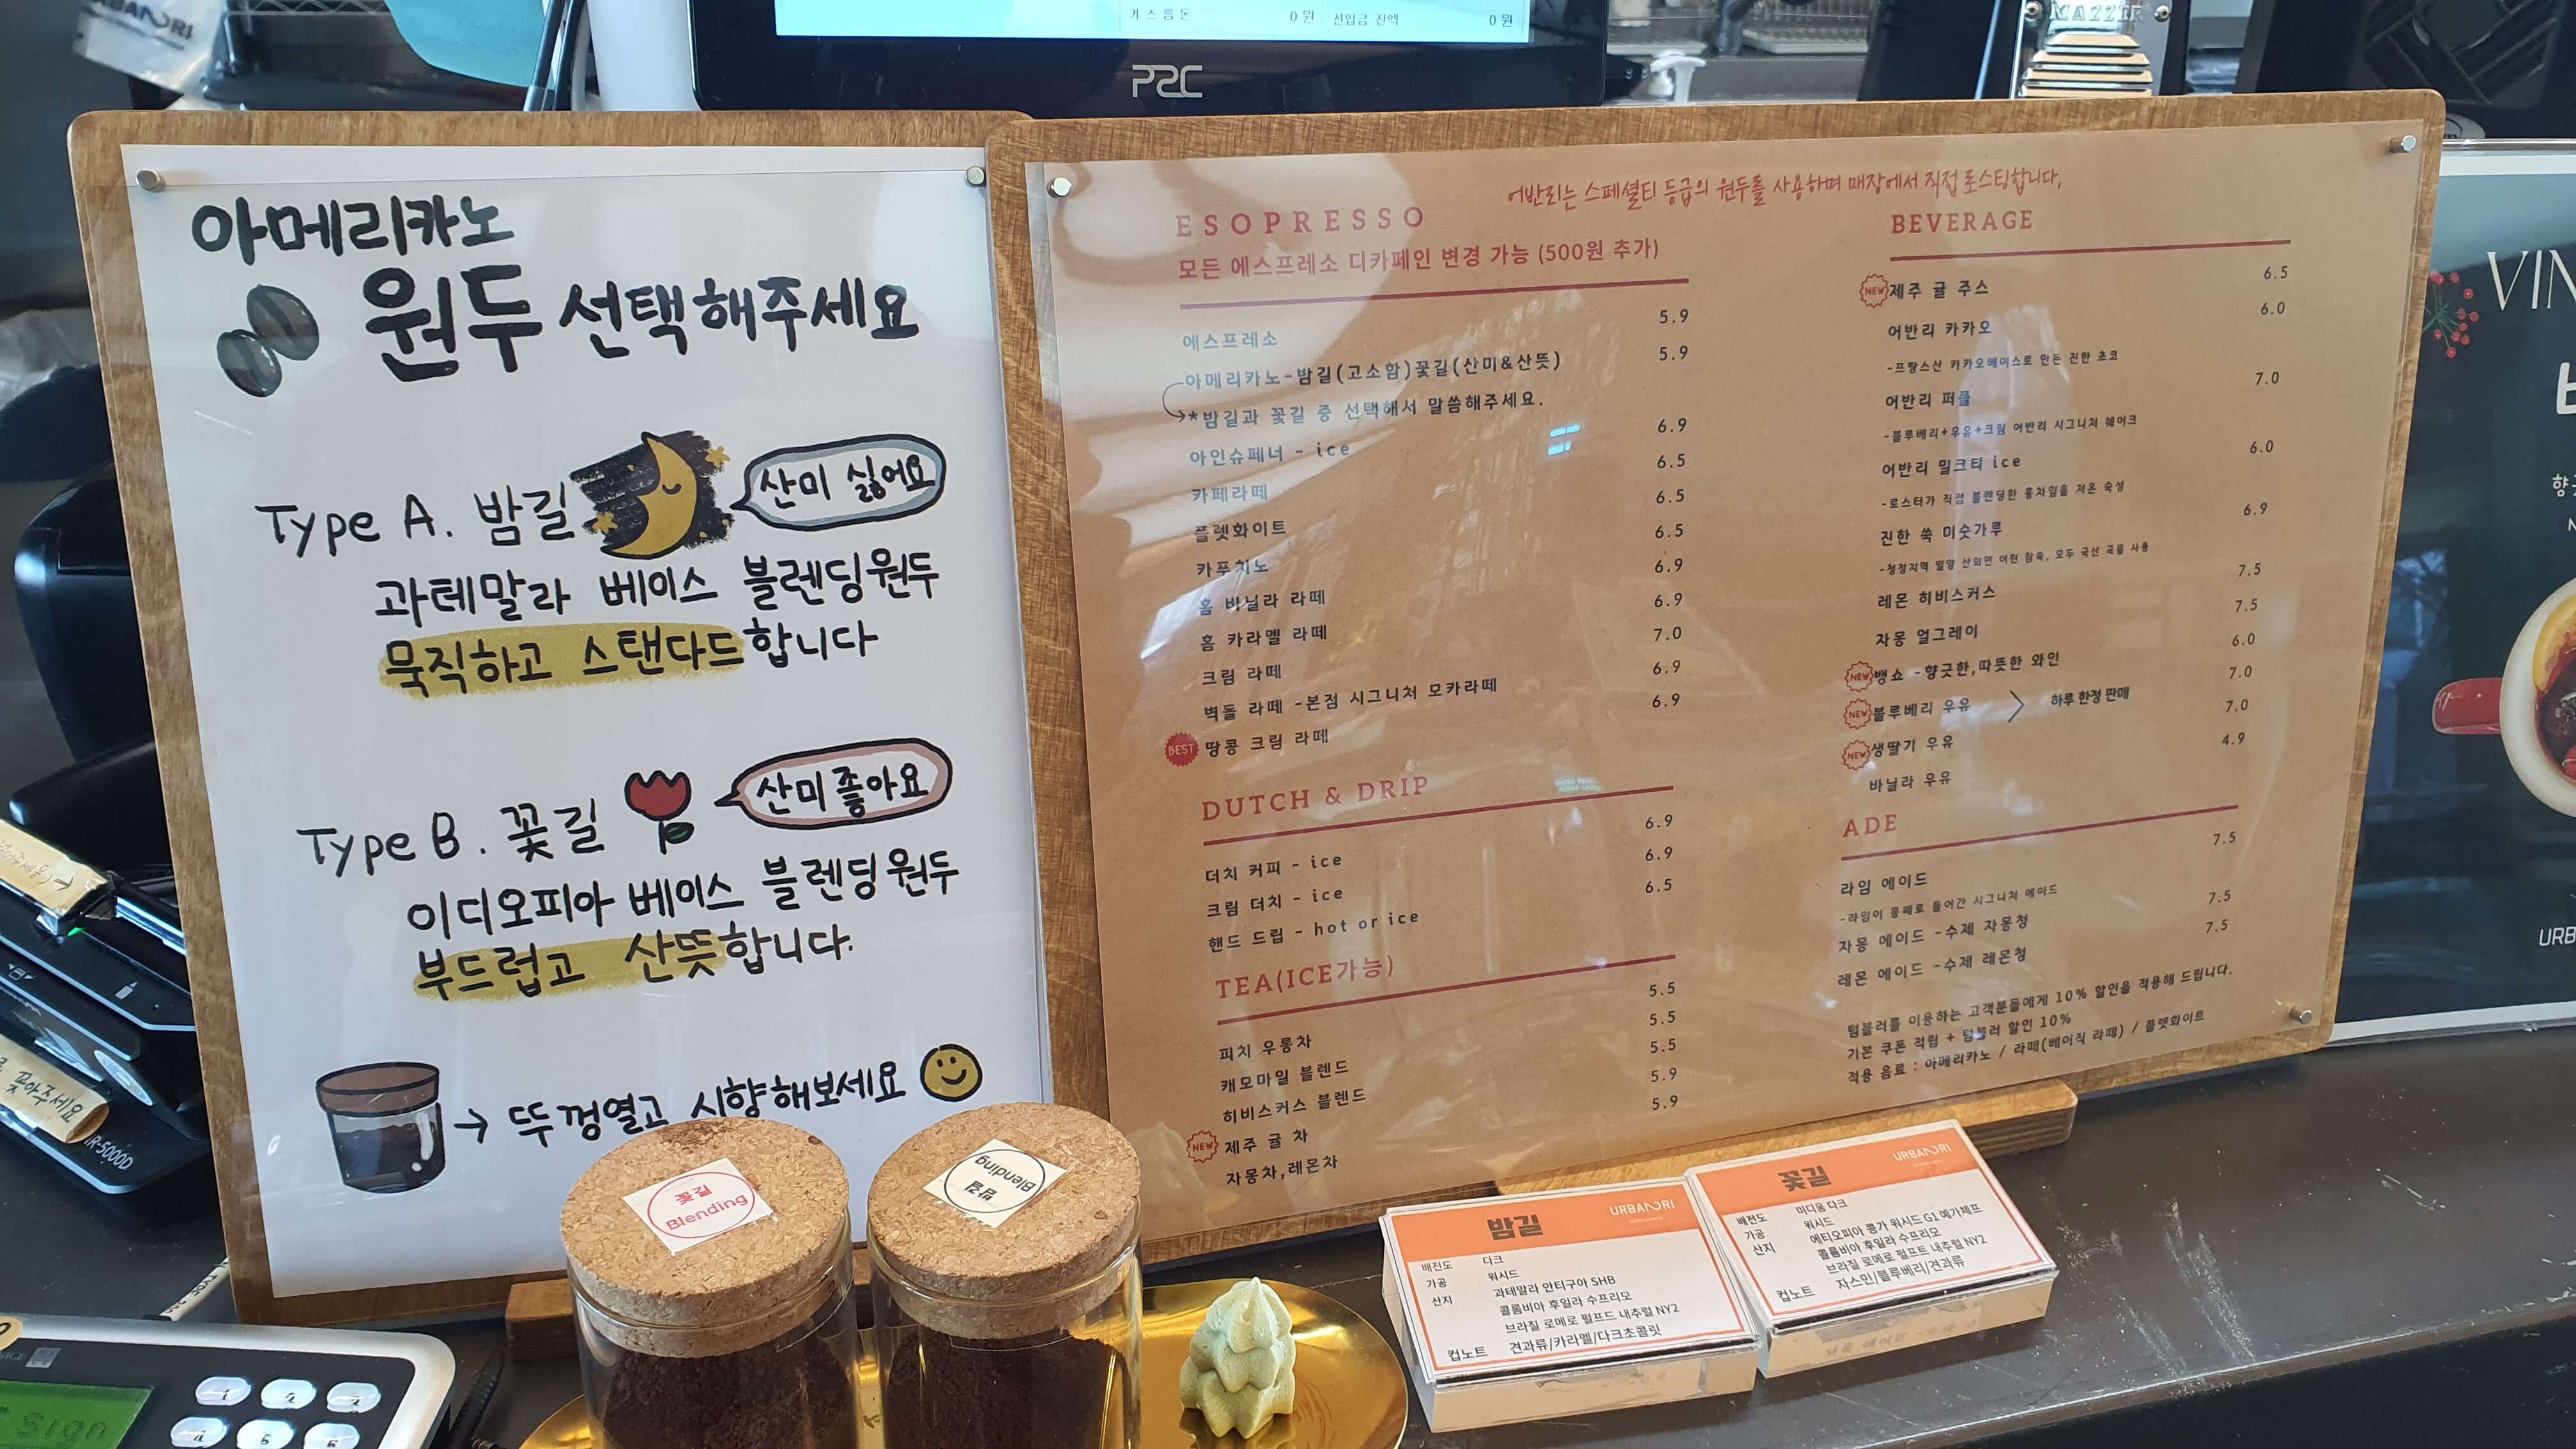 가스름돈 0 원 선입금 잔액 0 원
P2C
MAZZER
아메리카노
원두 선택해주세요
Type A. 밤길
산미 싫어요
과테말라 베이스 블렌딩원두
묵직하고 스탠다드합니다
Type B. 꽃길
산미좋아요
이디오피아 베이스 블렌딩원두
부드럽고 산뜻합니다.
→ 뚜껑열고 시향해보세요
꽃길
Blending
밤길
Blending
어반리는 스페셜티 등급의 원두를 사용하며 매장에서 직접 로스팅합니다.
ESOPRESSO
모든 에스프레소 디카페인 변경 가능 (500원 추가)
에스프레소 5.9
아메리카노-밤길(고소함)꽃길(산미&산뜻) 5.9
*밤길과 꽃길 중 선택해서 말씀해주세요.
아인슈페너 - ice 6.9
카페라떼 6.5
플렛화이트 6.5
카푸치노 6.5
홈 바닐라 라떼 6.9
홈 카라멜 라떼 6.9
크림 라떼 7.0
벽돌 라떼 -본점 시그니처 모카라떼 6.9
BEST 땅콩 크림 라떼 6.9
DUTCH & DRIP
더치 커피 - ice 6.9
크림 더치 - ice 6.9
핸드 드립 - hot or ice 6.5
TEA(ICE가능)
피치 우롱차 5.5
캐모마일 블렌드 5.5
히비스커스 블렌드 5.5
NEW 제주 귤 차 5.9
자몽차,레몬차 5.9
BEVERAGE
NEW 제주 귤 주스 6.5
어반리 카카오 6.0
-프랑스산 카카오베이스로 만든 진한 초코
어반리 퍼플 7.0
-블루베리+우유+크림 어반리 시그니처 쉐이크
어반리 밀크티 ice 6.0
-로스터가 직접 블랜딩한 홍차잎을 저온 숙성
진한 쑥 미숫가루 6.9
-청정지역 밀양 산외면 어린 참쑥, 모두 국산 곡물 사용
레몬 히비스커스 7.5
자몽 얼그레이 7.5
NEW 뱅쇼 -향긋한,따뜻한 와인 6.0
NEW 블루베리 우유 7.0
하루 한정 판매
NEW 생딸기 우유 7.0
바닐라 우유 4.9
ADE
라임 에이드 7.5
-라임이 통째로 들어간 시그니처 에이드
자몽 에이드 -수제 자몽청 7.5
레몬 에이드 -수제 레몬청 7.5
텀블러를 이용하는 고객분들에게 10% 할인을 적용해 드립니다.
기본 쿠폰 적립 + 텀블러 할인 10%
적용 음료 : 아메리카노 / 라떼(베이직 라떼) / 플랫화이트
밤길
URBANRI
배전도 다크
가공 워시드
산지 과테말라 안티구아 SHB
콜롬비아 후일라 수프리모
브라질 로메로 펄프드 내추럴 NY2
컵노트 견과류/카라멜/다크초콜릿
꽃길
URBANRI
배전도 미디움 다크
가공 워시드
산지 에티오피아 콩가 워시드 G1 예가체프
콜롬비아 후일라 수프리모
브라질 로메로 펄프트 내추럴 NY2
컵노트 자스민/블루베리/견과류
VIN
향긋
URB
꽂아주세요
IR-5000D
sign